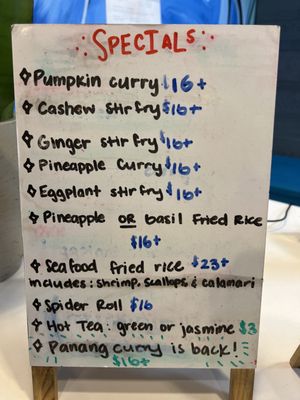 SPECIALS
Pumpkin curry $16+
Cashew stir fry $16+
Ginger stir fry $16+
Pineapple curry $16+
Eggplant stir fry $16+
Pineapple OR basil fried rice
$16+
Seafood fried rice $23+
includes: shrimp, scallops & calamari
Spider Roll $16
Hot Tea: green or jasmine $3
Panang curry is back!
$16+